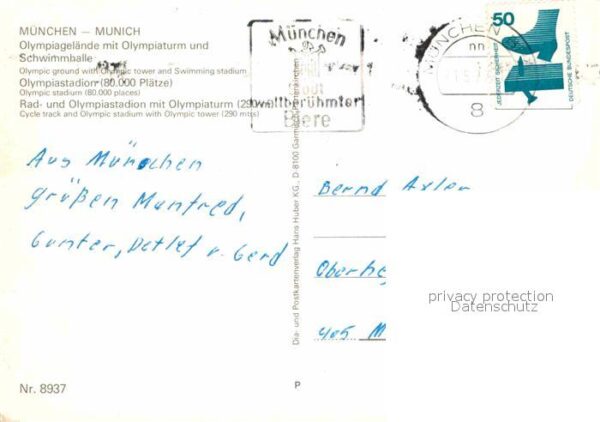 MÜNCHEN — MUNICH
Olympiagelände mit Olympiaturm und
Schwimmhalle
Olympic ground with Olympic tower and Swimming stadium
Olympiastadion (80.000 Plätze)
Olympic stadium (80.000 places)
Rad- und Olympiastadion mit Olympiaturm (290 m)
Cycle track and Olympic stadium with Olympic tower (290 mts)
München
weltberühmter
Biere
MÜNCHEN
8
50
JEDERZEIT SICHERHEIT
DEUTSCHE BUNDESPOST
Aus München
grüßen Manfred,
Gunter, Detlef u. Gerd
Dia- und Postkartenverlag Hans Huber KG., D 8100 Garmisch-Partenkirchen
Bernd Axler
405 M
privacy protection
Datenschutz
Nr. 8937
P